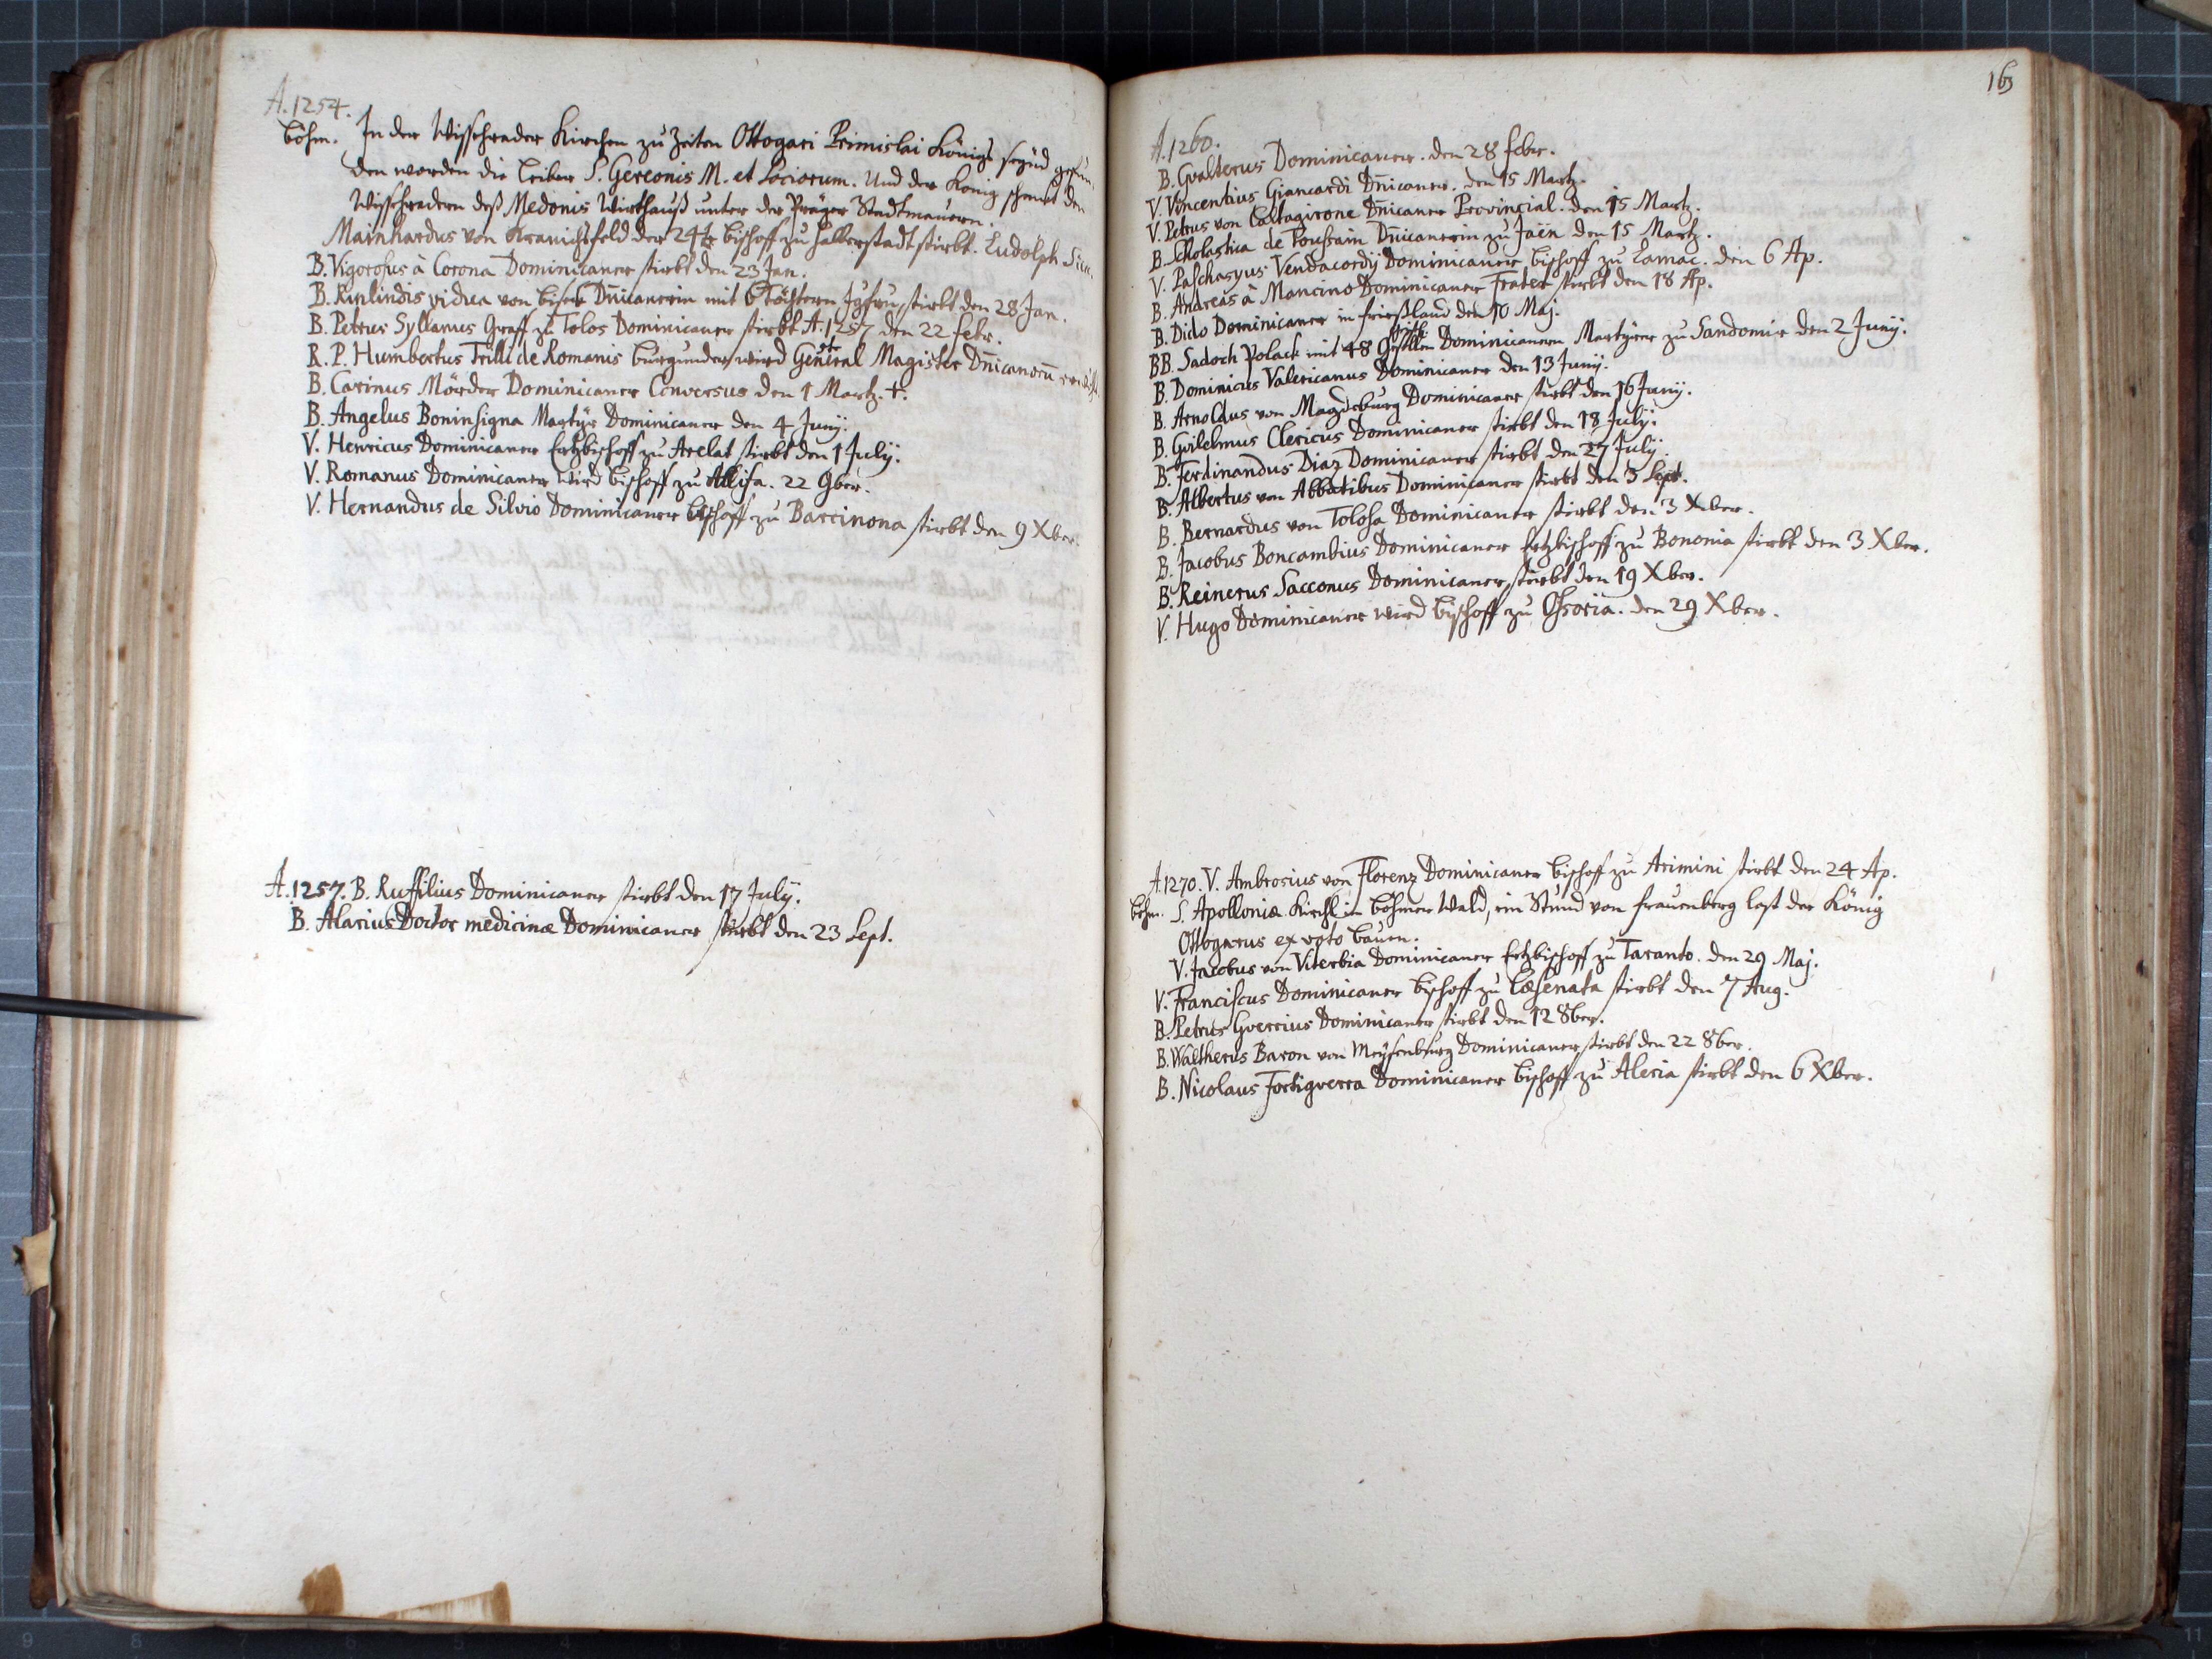 A. 1254.
böhm. In der Wisschrader Kirchen zu Zeiten Ottogari Primislai Königs seynd gefun-
den worden die Leiber S. Gereonis M. et Sociorum. Und der König schenckt den
Wisschradern deß Medonis Wirthauß unter der Präger Stadtmauern.
Mainhardus von Kranichsfeld der 24te bischoff zu Halberstadt stirbt. Ludolph
B. Vigorosus à Corona Dominicaner stirbt den 23 Jan.
B. Rulindis vidua von Dn̄icanerin mit 6 Töchtern Jgfru, stirbt den 28 Jan.
B. Petrus Syllanus Graff zu Tolos Dominicaner stirbt A. 1257 den 22 febr.
R. P. Humbertus de Romanis burgunder, wird 5te General Magister Dn̄icanorū
B. Carinus Mörder Dominicaner Conversus den 1 Martz. †.
B. Angelus Boninsigna Martyr Dominicaner den 4 Junÿ.
V. Henricus Dominicaner Ertzbischoff zu Arelat stirbt den 1 Julÿ.
V. Romanus Dominicaner wird bischoff zu Allifa. 22 9ber.
V. Hernandus de Silvio Dominicaner bischoff zu Barcinona stirbt den 9 Xber.
A. 1257. B. Ruffilius Dominicaner stirbt den 17 Julÿ.
B. Alarius Doctor medicinæ Dominicaner stirbt den 23 Sept.
163
A. 1260.
B. Gvalterus Dominicaner. den 28 febr.
V. Vincentius Giancardi Dn̄icaner. den 15 Martz.
V. Petrus von Caltagirone Dn̄icaner Provincial. den 15 Martz.
B. Scholastica de Poussain Dn̄icanerin zu Jaen den 15 Martz.
V. Paschasyus Vendacordÿ Dominicaner bischoff zu Lamac. den 6 Ap.
B. Andreas à Mancino Dominicaner Frater stirbt den 18 Ap.
B. Dido Dominicaner in frießland den 10 Maj.
BB. Sadoch Polack mit 48 Dominicanern Martyrer zu Sandomir den 2 Junÿ.
B. Dominicus Valericanus Dominicaner den 13 Junÿ.
B. Arnoldus von Magdeburg Dominicaner stirbt den 16 Junÿ.
B. Gvilelmus Clericus Dominicaner stirbt den 18 Julÿ.
B. Ferdinandus Diaz Dominicaner stirbt den 27 Julÿ.
B. Albertus von Abbatibus Dominicaner stirbt den 3 Sept.
B. Bernardus von Tolosa Dominicaner stirbt den 3 Xber.
B. Jacobus Boncambius Dominicaner Ertzbischoff zu Bononia stirbt den 3 Xber.
B. Reinerus Sacconus Dominicaner, stirbt den 19 Xber.
V. Hugo Dominicaner wird bischoff zu Ossoria. den 29 Xber.
A. 1270. V. Ambrosius von Florenz Dominicaner bischoff zu Arimini stirbt den 24 Ap.
böhm. S. Apolloniæ Kirchl in böhmer Wald, ein Stund von frauenberg last der König
Ottogarus ex voto bauen.
V. Jacobus von Viterbia Dominicaner Ertzbischoff zu Taranto. den 29 Maj.
V. Franciscus Dominicaner bischoff zu Cæsenata stirbt den 7 Aug.
B. Petrus Gvercius Dominicaner stirbt den 12 8ber.
B. Waltherus Baron von Meysenburg Dominicaner, stirbt den 22 8ber.
B. Nicolaus Fortigverra Dominicaner bischoff zu Aleria stirbt den 6 Xber.